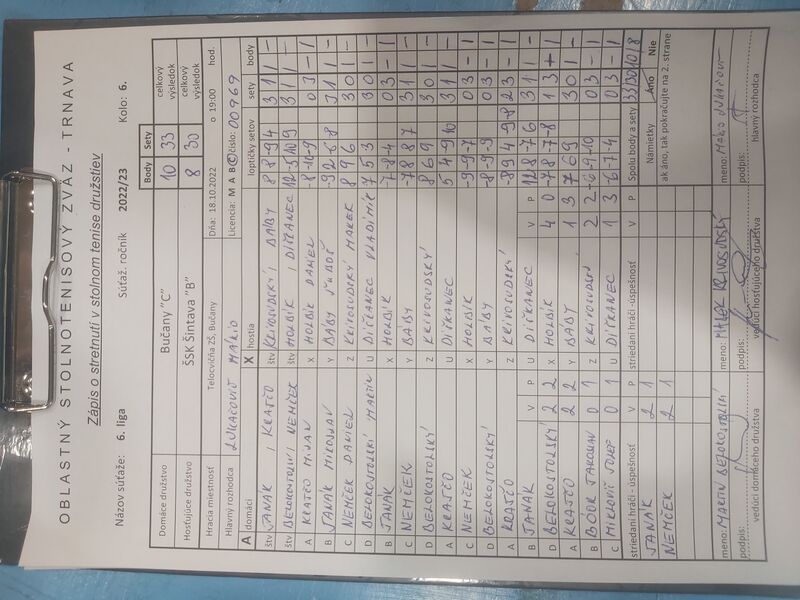 OBLASTNÝ STOLNOTENISOVÝ ZVÄZ - TRNAVA
Zápis o stretnutí v stolnom tenise družstiev
Názov súťaže: 6. liga Súťaž. ročník 2022/23 Kolo: 6.
Body Sety celkový výsledok
Domáce družstvo Bučany "C" 10 33
Hosťujúce družstvo ŠSK Šintava "B" 8 30 celkový výsledok
Hracia miestnosť Telocvičňa ZŠ, Bučany Dňa: 18.10.2022 o 19:00 hod.
Hlavný rozhodca LUKAČOVIČ MÁRIO Licencia: M A B C číslo: 00969
A domáci X hostia loptičky setov sety body
štv JANÁK / KRAJČO štv KRIVOSUDSKÝ / BÁBY 8 8 -9 4 3 1 1 -
štv BELOKOSTOLSKÝ / NEMČEK štv HOLBÍK / DIČKANEC 3 1 1 -
A KRAJČO MILAN X HOLBÍK DANIEL 0 3 - 1
B JANÁK MIROSLAV Y BÁBY 3 1 1 -
C NEMČEK DANIEL Z KRIVOSUDSKÝ MAREK 8 9 6 3 0 1 -
D BELOKOSTOLSKÝ MARTIN U DIČKANEC VLADIMÍR 7 5 3 3 0 1 -
B JANÁK X HOLBÍK -7 -8 -4 0 3 - 1
C NEMČEK Y BÁBY 3 1 1 -
D BELOKOSTOLSKÝ Z KRIVOSUDSKÝ 8 6 9 3 0 1 -
A KRAJČO U DIČKANEC 5 4 -9 10 3 1 1 -
C NEMČEK X HOLBÍK -9 -9 -7 0 3 - 1
D BELOKOSTOLSKÝ Y BÁBY -8 -9 -9 0 3 - 1
A KRAJČO Z KRIVOSUDSKÝ -8 9 4 -9 -8 2 3 - 1
B JANÁK V P U DIČKANEC V P 12 8 -7 6 3 1 1 -
D BELOKOSTOLSKÝ 2 2 X HOLBÍK 4 0 -7 8 -7 -8 1 3 - 1
A KRAJČO 2 2 Y BÁBY 1 3 7 6 9 3 0 1 -
B BÓOR JAROSLAV 0 1 Z KRIVOSUDSKÝ 2 2 -6 -9 -10 0 3 - 1
C MIKLOVIČ JOZEF 0 1 U DIČKANEC 1 3 -6 -7 -4 0 3 - 1
striedaní hráči -úspešnosť V P striedaní hráči -úspešnosť V P Spolu body a sety 33 30 10 8
JANÁK 2 1 Námietky Áno Nie
NEMČEK 2 1 ak áno, tak pokračujte na 2. strane
meno: MARTIN BELOKOSTOLSKÝ meno: MAREK KRIVOSUDSKÝ meno: MÁRIO LUKAČOVIČ
podpis: podpis: podpis:
vedúci domáceho družstva vedúci hosťujúceho družstva hlavný rozhodca